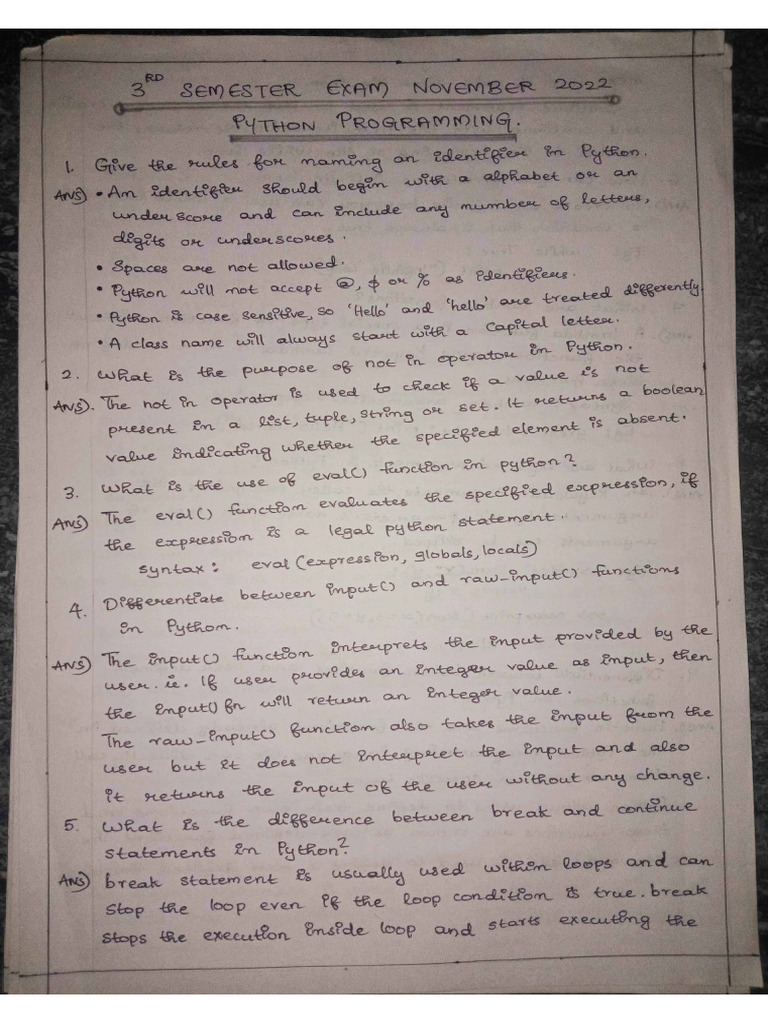 3RD SEMESTER EXAM NOVEMBER 2022
PYTHON PROGRAMMING.
1. Give the rules for naming an identifier in Python.
ANS) • An identifier should begin with a alphabet or an
underscore and can include any number of letters,
digits or underscores.
• Spaces are not allowed.
• Python will not accept @, $ or % as identifiers.
• Python is case sensitive, so 'Hello' and 'hello' are treated differently.
• A class name will always start with a capital letter.
2. What is the purpose of not in operator in Python.
ANS). The not in operator is used to check if a value is not
present in a list, tuple, string or set. It returns a boolean
value indicating whether the specified element is absent.
3. What is the use of eval() function in python?
ANS) The eval() function evaluates the specified expression, if
the expression is a legal python statement.
syntax: eval(expression, globals, locals)
4. Differentiate between input() and raw-input() functions
in Python.
ANS) The input() function interprets the input provided by the
user. ie. If user provides an integer value as input, then
the input() fn will return an integer value.
The raw-input() function also takes the input from the
user but it does not interpret the input and also
it returns the input of the user without any change.
5. What is the difference between break and continue
statements in Python?
ANS) break statement is usually used within loops and can
stop the loop even if the loop condition is true. break
stops the execution inside loop and starts executing the